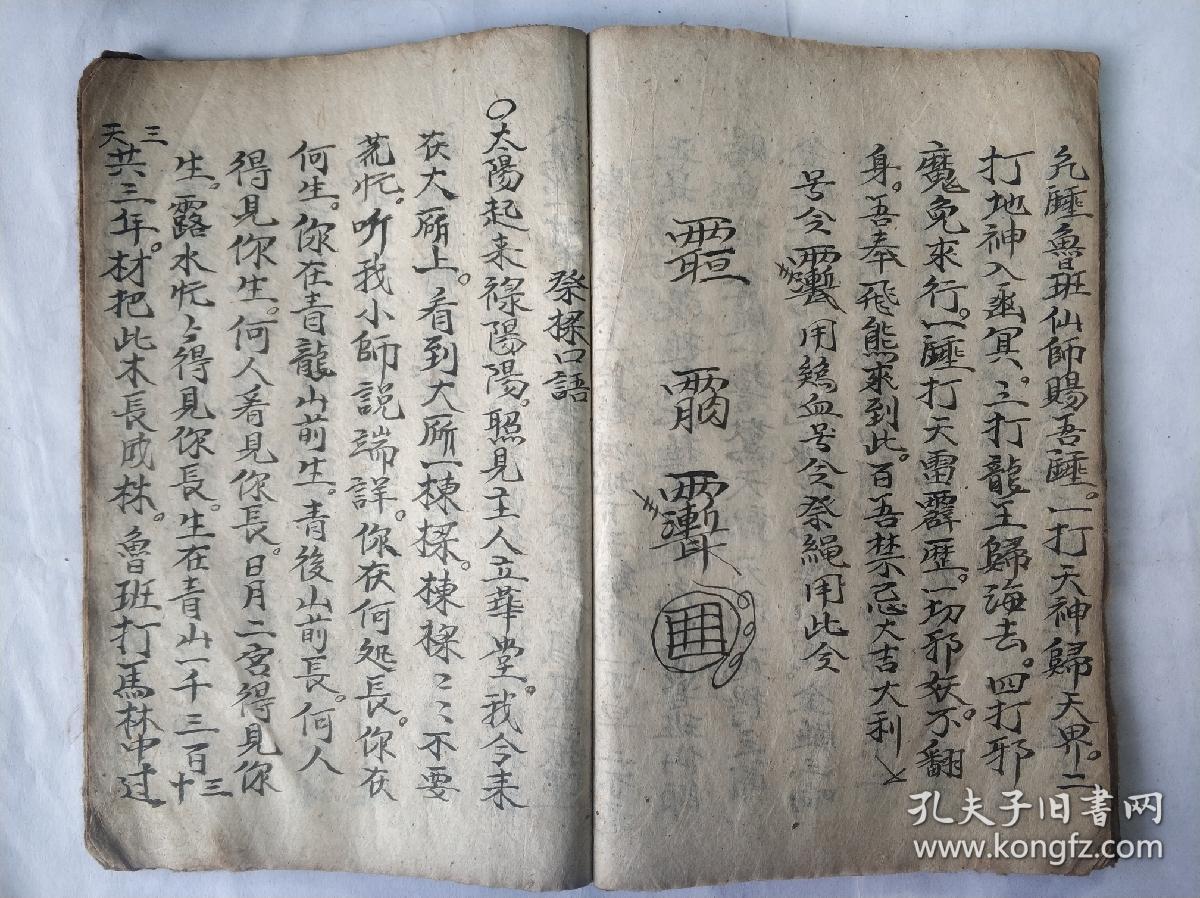 魯班仙師賜吾。一打天神歸天界。二
打地神入幽冥。三打龍王歸海去。四打邪
魔免來行。一打天雷霹歷。一切邪妖不翻
身。吾奉飛熊來到此。百吾禁忌大吉大利
号令用鷄血号令祭繩用此令
祭樑口語
〇太陽起来祿陽陽。照見主人立華堂。我今来
在大廊上。看到大廊一棟樑。棟樑〻〻不要
荒忙。听我小師説端詳。你在何处長。你在
何生。你在青龍山前生。青後山前長。何人
得見你生。何人看見你長。日月二宮得見你
生。露水忙得見你長。生在青山一千三百十三
天三共三年。材把此木長成林。魯班打馬林中过
孔夫子旧书网
www.kongfz.com